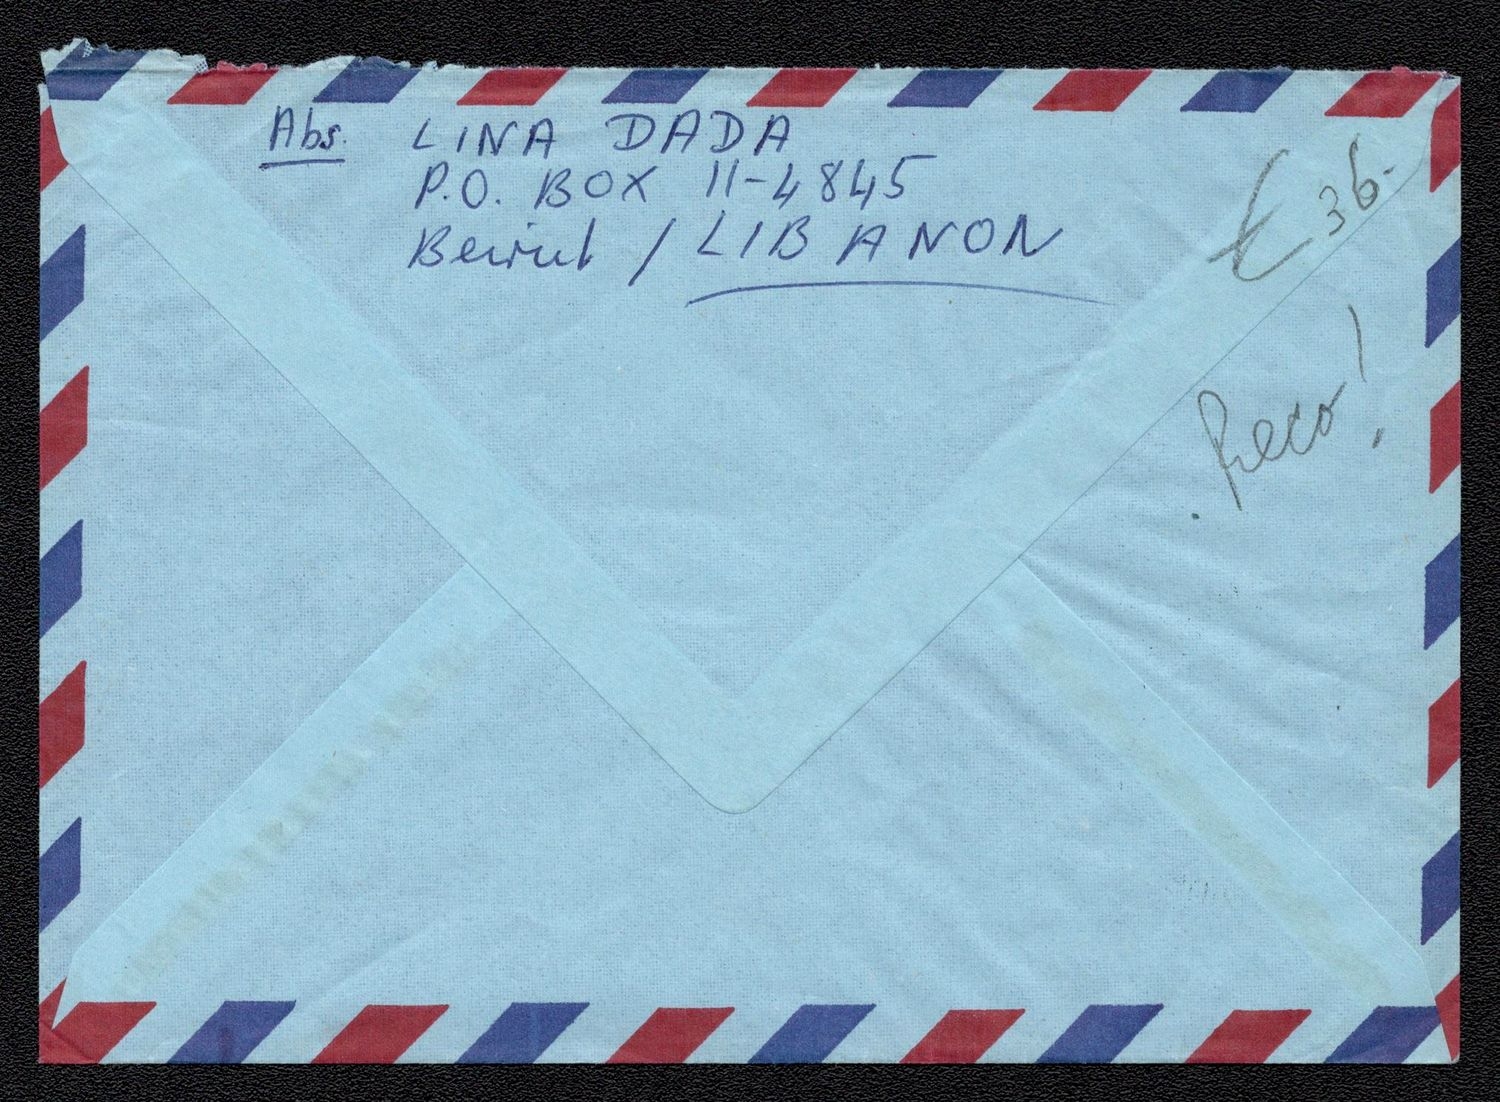 Abs. LINA DADA
P.O. BOX 11-4845
Beirut / LIBANON
€ 36.-
Reco!